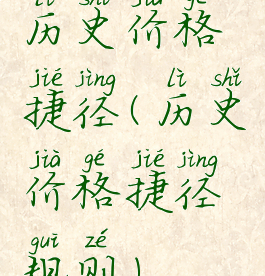 lì shǐ jià gé
历史价格
jié jìng lì shǐ
捷径(历史
jià gé jié jìng
价格捷径
guī zé
规则)